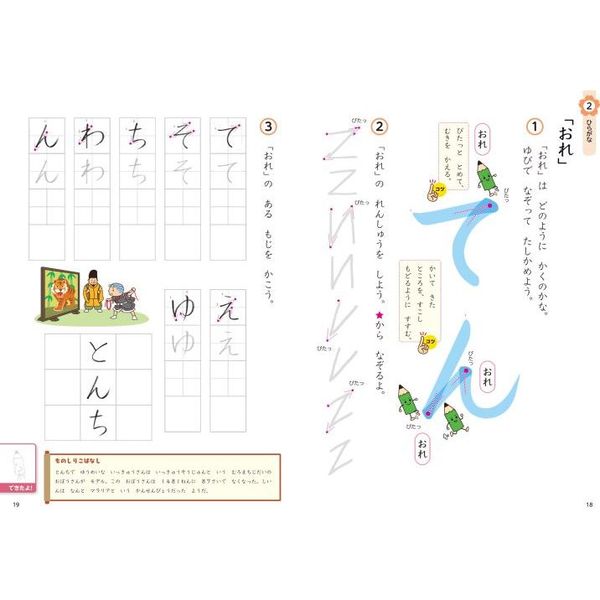 2
ひらがな
「おれ」
1
「おれ」は どのように かくのかな。
ゆびで なぞって たしかめよう。
おれ
ぴたっと とめて、
むきを かえる。
コツ
ぴたっ
て
かいて きた
ところを、すこし
もどるように すすむ。
コツ
ん
ぴたっ
おれ
ぴたっ
おれ
2
「おれ」の れんしゅうを しよう。★から なぞるよ。
ぴたっ
ぴたっ
ぴたっ
ぴたっ
3
「おれ」の ある もじを かこう。
て て
そ そ
ち ち
わ わ
ん ん
え え
ゆ ゆ
とんち
ものしりこばなし
とんちで ゆうめいな いっきゅうさんは いっきゅうそうじゅんと いう むろまちじだいの
おぼうさんが モデル。この おぼうさんは
なくなった。しい
んは なんと マラリアと いう かんせんびょうだった ようだ。
できたよ!
19
18